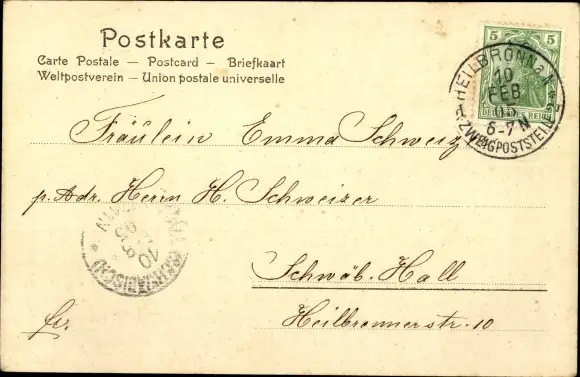 Postkarte
Carte Postale — Postcard — Briefkaart
Weltpostverein — Union postale universelle
5 5
DEUTSCHES REICH
HEILBRONN a. N.
10
FEB
05
6-7 N
ZWEIGPOSTSTELLE
Fräulein Emma Schweizer
p. Adr. Herrn H. Schweizer
10
05
Schwäb. Hall
Heilbronnerstr. 10
fr.